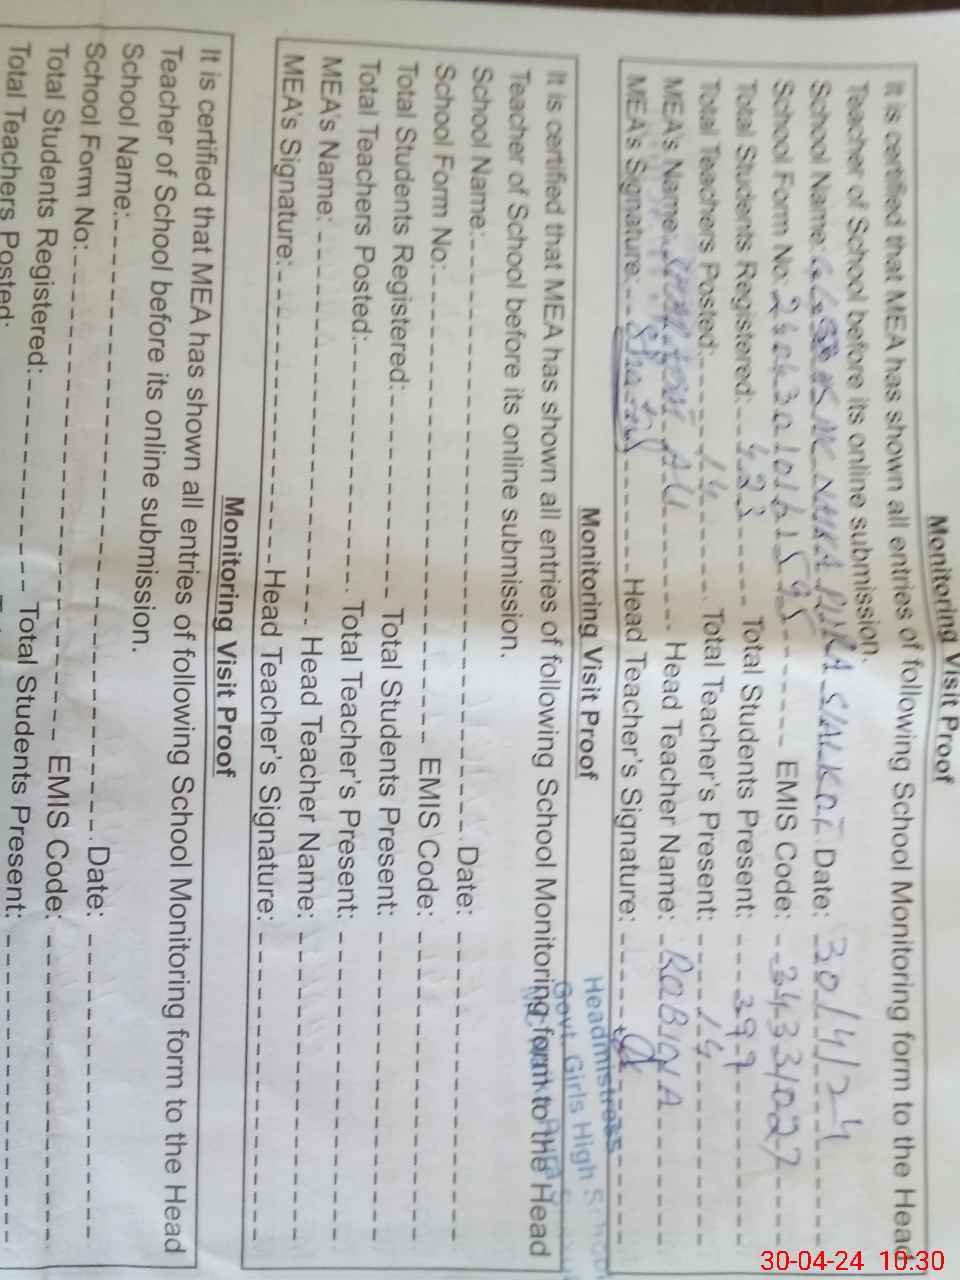 Monitoring Visit Proof
It is certified that MEA has shown all entries of following School Monitoring form to the Head
Teacher of School before its online submission.
School Name: PURA SIALKOT Date: 30/4/24
School Form No: EMIS Code: 34331027
Total Students Registered: 423 Total Students Present: 397
Total Teachers Posted: 14 Total Teacher's Present: 14
MEA's Name: ALI Head Teacher Name: RABIQA
MEA's Signature: Head Teacher's Signature:
Headmistress
Govt. Girls High School
Monitoring Visit Proof
It is certified that MEA has shown all entries of following School Monitoring form to the Head
Teacher of School before its online submission.
School Name: Date:
School Form No: EMIS Code:
Total Students Registered: Total Students Present:
Total Teachers Posted: Total Teacher's Present:
MEA's Name: Head Teacher Name:
MEA's Signature: Head Teacher's Signature:
Monitoring Visit Proof
It is certified that MEA has shown all entries of following School Monitoring form to the Head
Teacher of School before its online submission.
School Name: Date:
School Form No: EMIS Code:
Total Students Registered: Total Students Present:
Total Teachers Posted:
30-04-24 10:30